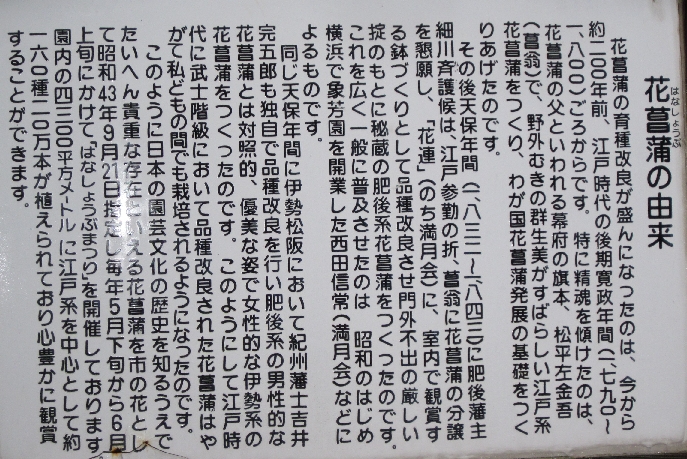 花菖蒲の由来
はなしょうぶ
花菖蒲の育種改良が盛んになったのは、今から
約二〇〇年前、江戸時代の後期寛政年間(一七九〇〜
一、八〇〇)ごろからです。特に精魂を傾けたのは、
花菖蒲の父といわれる幕府の旗本、松平左金吾
(菖翁)で、野外むきの群生美がすばらしい江戸系
花菖蒲をつくり、わが国花菖蒲発展の基礎をつく
りあげたのです。
その後天保年間(一、八三二〜一、八四三)に肥後藩主
細川斉護候は、江戸参勤の折、菖翁に花菖蒲の分譲
を懇願し、「花連」(のち満月会)に、室内で観賞す
る鉢づくりとして品種改良させ門外不出の厳しい
掟のもとに秘蔵の肥後系花菖蒲をつくったのです。
これを広く一般に普及させたのは 昭和のはじめ
横浜で象芳園を開業した西田信常(満月会)などに
よるものです。
同じ天保年間に伊勢松阪において紀州藩士吉井
完五郎も独自で品種改良を行い肥後系の男性的な
花菖蒲とは対照的、優美な姿で女性的な伊勢系の
花菖蒲をつくったのです。このようにして江戸時
代に武士階級において品種改良された花菖蒲はや
がて私どもの間でも栽培されるようになったのです。
このように日本の園芸文化の歴史を知るうえで
たいへん貴重な存在といえる花菖蒲を市の花とし
て昭和43年9月21日指定し毎年5月下旬から6月
上旬にかけて「はなしょうぶまつり」を開催しております。
園内の四三〇〇平方メートルに江戸系を中心として約
一六〇種二〇万本が植えられており心豊かに観賞
することができます。